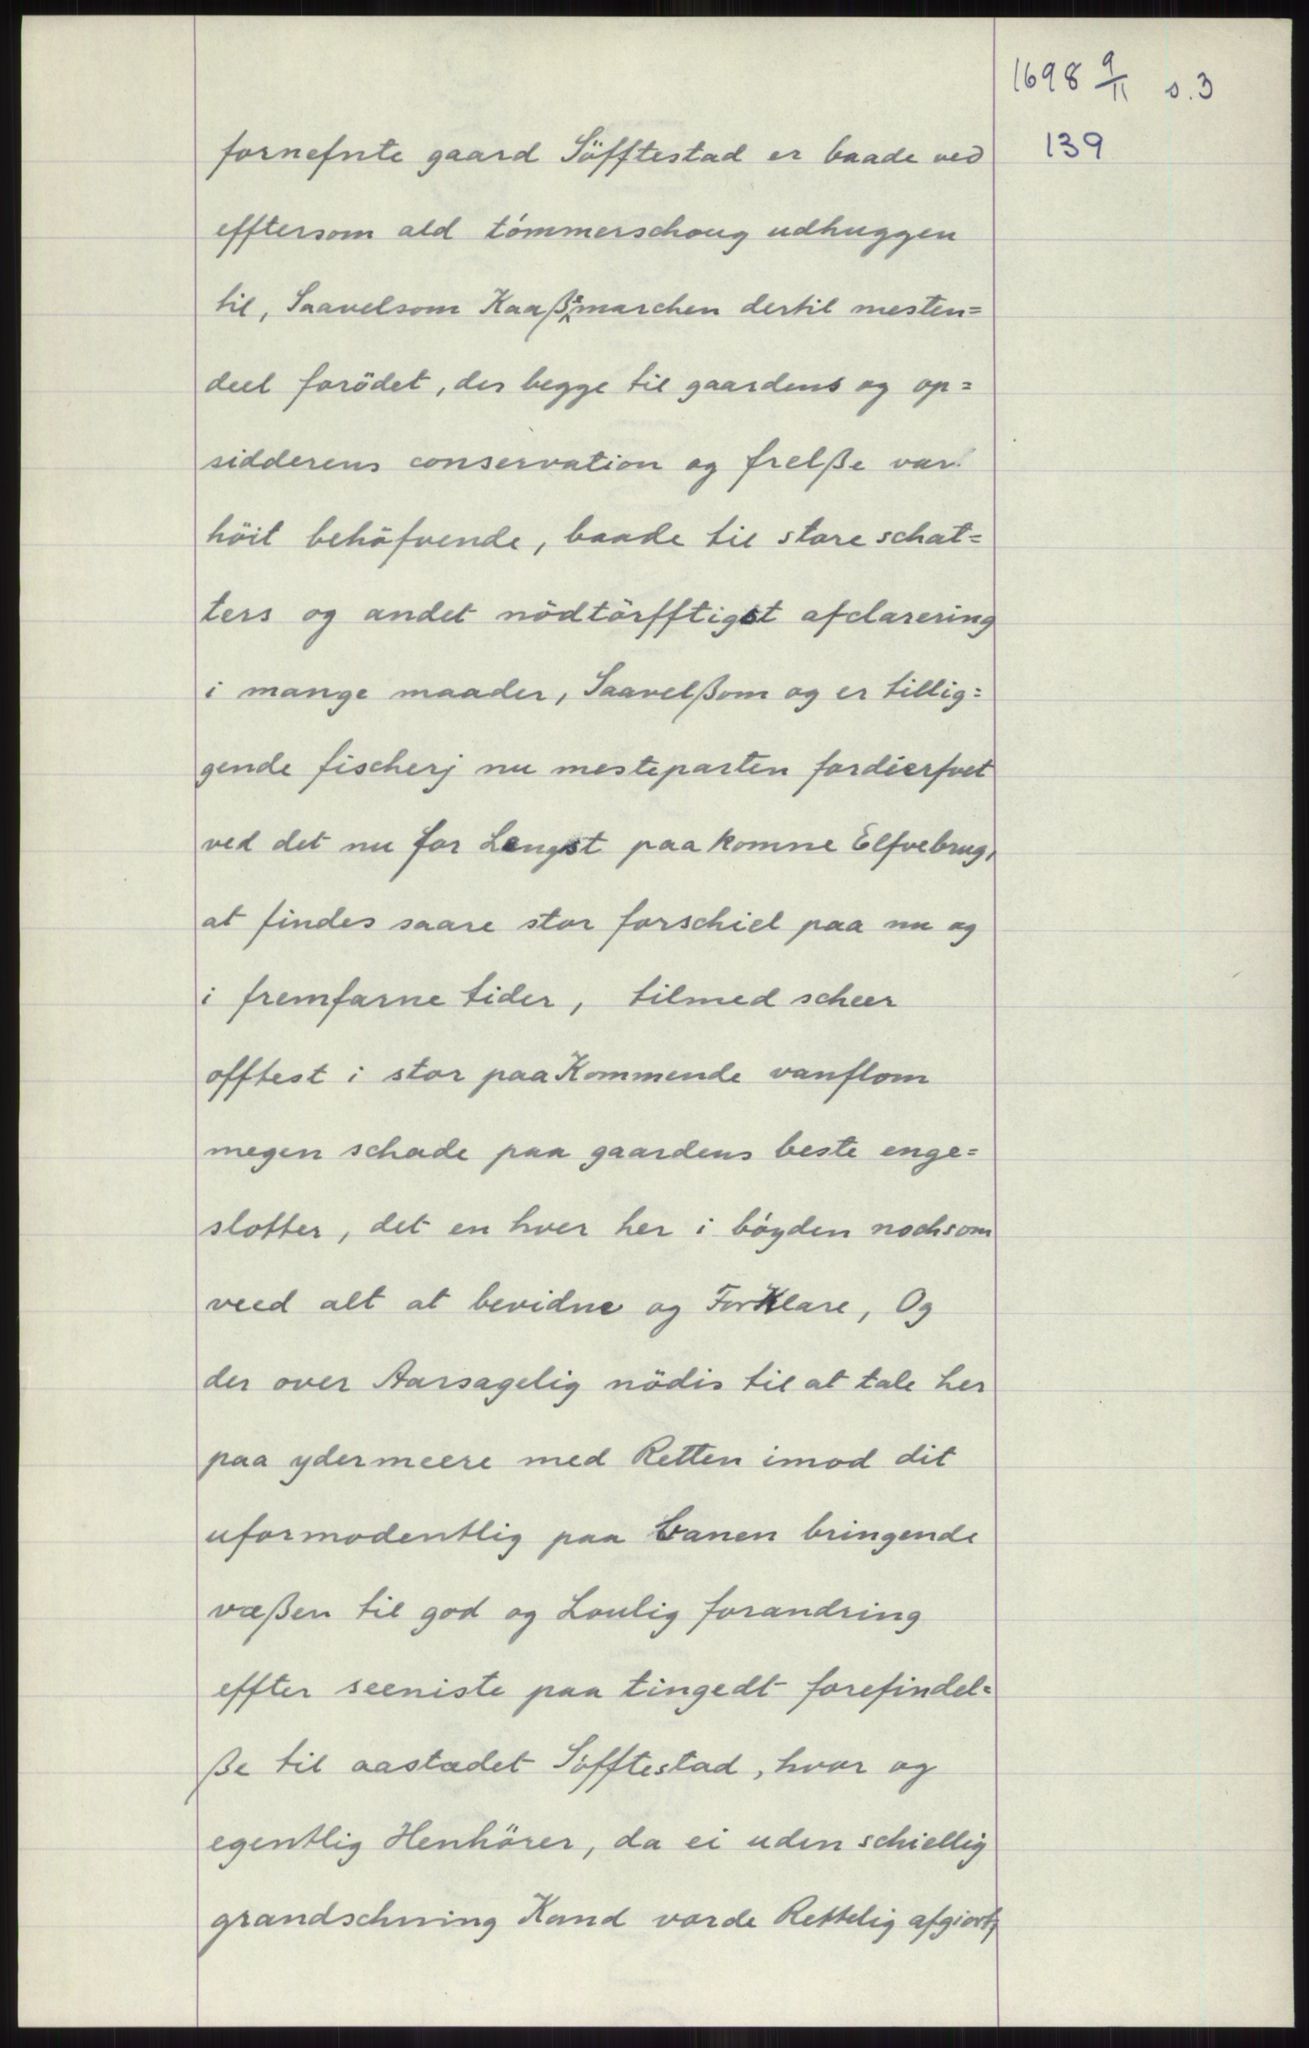 1698 9/11 s.3
139
fornefnte gaard Söfftestad er baade ved
efftersom ald tómmerschoug udhuggen
til, Saavelsom Kaaß=marchen dertil mesten=
deel forödet, der begge til gaardens og op=
sidderens conservation og frelße var
höit behöfvende, baade til store schat=
ters og andet nödtörfftigst afclarering
i mange maader, Saavelßom og er tillig=
gende fischerj nu mesteparten fordierfvet
ved det nu for Lengst paakomne Elfvebrug,
at findes saare stor forschiel paa nu og
i fremfarne tider, tilmed scheer
offtest i stor paaKommende vanflom
megen schade paa gaardens beste enge=
slotter, det en hver her i bóyden nochsom
veed alt at bevidne og ForKlare, Og
der over Aarsagelig nödis til at tale her
paa ydermeere med Retten imod dit
uformodentlig paa banen bringende
væßen til god og Loulig forandring
effter seeniste paa tingedt forefindel=
ße til aastædet Söfftestad, hvor og
egentlig Henhörer, da ei uden schiellig
grandschning Kand vorde Rettelig afgiort,